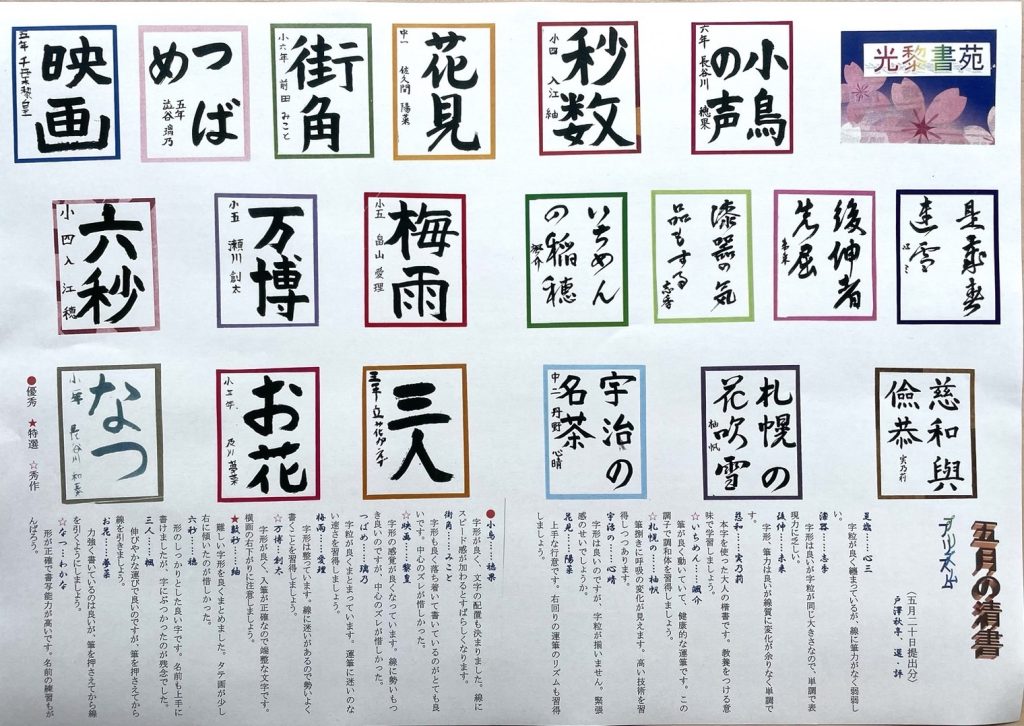 光黎書苑
小鳥の声
六年 長谷川 穂果
秒数
小四 入江 紬
花見
中一 佐久間 陽菜
街角
小六年 前田 みこと
つばめ
五年 澁谷 璃乃
映画
五年
是歳春
連雪
心三
後伸者
先屈
未来
漆器の気
品もする
志季
いちめん
の稲穂
颯介
梅雨
小五 畠山 愛理
万博
小五 瀬川 創太
六秒
小四 入江 穂
慈和與
倹恭
実乃莉
札幌の
花吹雪
柚帆
宇治の
名茶
中二 丹野 心晴
三人
お花
及川 夢菜
なつ
小一年 長谷川 和奏
五月の清書
(五月二十日提出分)
戸澤秋亭 選・評
是歳……心三
字粒が良く纏まっているが、線に筆力がなく弱弱しい。
漆器……志季
字形は良いが字粒が同じ大きさなので、単調で表現力に乏しい。
後伸……未来
字形、筆力は良いが線質に変化が余りなく単調です。
慈和……実乃莉
本字を使った大人の楷書です。教養をつける意味で学習しましょう。
☆いちめん……颯介
筆が良く動いていて、健康的な運筆です。この調子で調和体を習得しましょう。
☆札幌の……柚帆
筆捌きに呼吸の変化が見えます。高い技術を習得しつつあります。
宇治の……心晴
字形は良いのですが、字粒が揃いません。緊張感のせいでしょうか。
花見……陽菜
上手な行意です。右回りの運筆のリズムも習得しましょう。
●小鳥……穂果
字形が良く、文字の配置も決まりました。線にスピード感が加わるとすばらしくなります。
街角……みこと
字形も良く、落ち着いて書いているのがとても良いです。中心のズレが惜しかった。
☆映画……黎皇
字形の感覚が良くなっています。線に勢いもつき良いのですが、中心のズレが惜しかった。
つばめ……璃乃
字形が良くまとまっています。運筆に迷いのない速さを習得しましょう。
梅雨……愛理
字形は整っています。線に迷いがあるので勢いよく書くことを習得しましょう。
☆万博……創太
字形が良く、入筆が正確なので端整な文字です。横画の右下がりに注意しましょう。
★数秒……紬
難しい字形を良くまとめました。タテ画が少し右に傾いたのが惜しかった。
六秒……穂
形のしっかりとした良い字です。名前も上手に書けましたが、字にぶつかったのが残念でした。
三人……楓
伸びやかな運びで良いのですが、筆を押さえてから線を引きましょう。
お花……夢菜
力強く書いているのは良いが、筆を押さえてから線を引くようにしましょう。
☆なつ……わかな
形が正確で書写能力が高いです。名前の練習もがんばろう。
●優秀 ★特選 ☆秀作